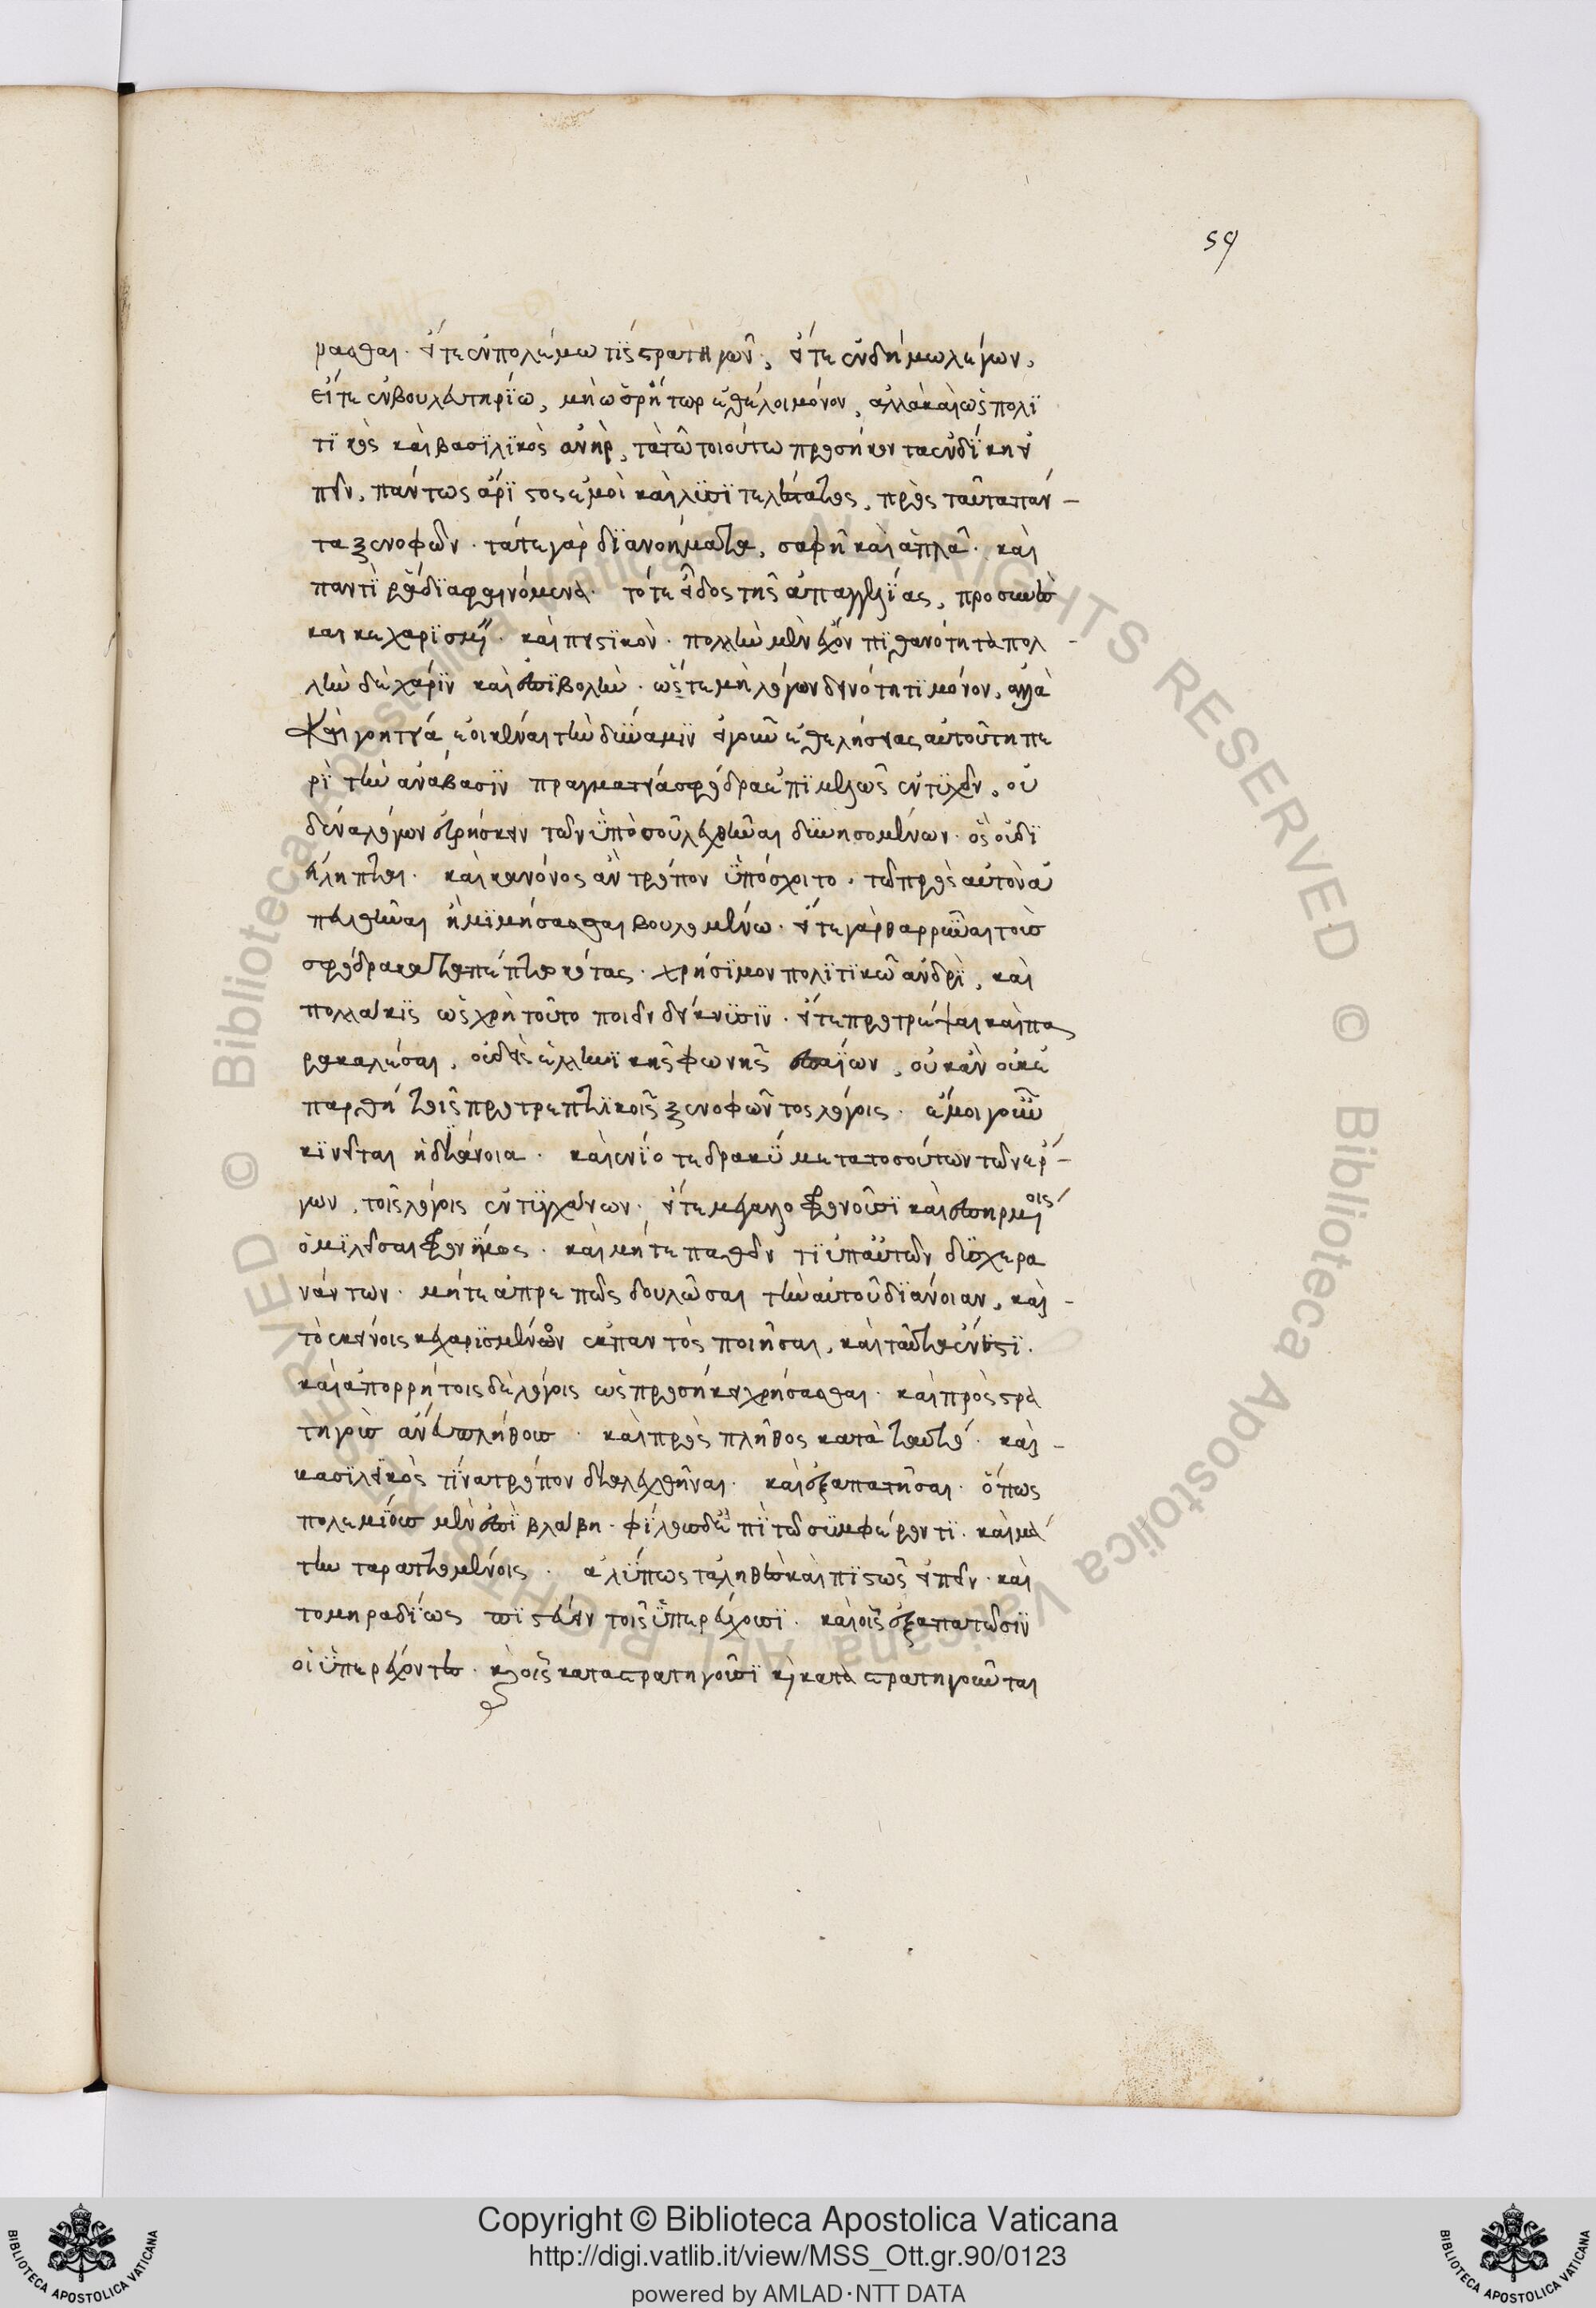 59
ρασθαι. εἴτε ἐν πολέμω τίς στρατηγῶν, εἴτε ἐν δήμω λέγων,
εἴτε ἐν βουλευτηρίω, μὴ ὡς ῥήτωρ ἐθέλοι μόνον, ἀλλὰ καὶ ὡς πολι
τικὸς καὶ βασιλικὸς ἀνὴρ, τὰ τῶ τοιούτω προσήκοντα ἐν δίκη εἰ
πεῖν, πάντως ἄριστος ἐμοὶ καὶ λυσιτελέστατος, πρὸς ταῦτα πάν-
τα ξενοφῶν. τά τε γὰρ διανοήματα, σαφῆ καὶ ἁπλᾶ. καὶ
παντὶ ῥάδια φαινόμενα. τό τε εἶδος τῆς ἀπαγγελίας, προσηνὲς
καὶ κεχαρισμ. καὶ πειστικὸν. πολλὴν μὲν ἔχον πιθανότητα πολ-
λὴν δὲ χάριν καὶ ἐπιβολὴν. ὥστε μὴ λόγων δεινότητι μόνον, ἀλλὰ
καὶ γοητεία ἐοικέναι τὴν δύναμιν εἰ γοῦν ἐθελήσειας αὐτοῦ τῆ πε
ρὶ τὴν ἀνάβασιν πραγματεία σφόδρα ἐπιμελῶς ἐντυχεῖν, οὐ
δένα λόγον εὑρήσειν τῶν ὑπὸ σοῦ λεχθῆναι δυνησομένων. ὃς οὐ δι
είληπται. καὶ κανόνος ἂν τρόπον ὑπόσχοιτο, τῶ πρὸς αὐτὸν ἀ
πευθῆναι ἢ μιμήσασθαι βουλομένω. εἴτε γὰρ θαρρῦναι τοὺς
σφόδρα καταπεπτωκότας. χρήσιμον πολιτικῶ ἀνδρὶ, καὶ
πολλάκις ὡς χρὴ τοῦτο ποιεῖν δείκνυσιν. εἴτε προτρέψαι καὶ πα
ρακαλέσαι, οὐδεὶς ἑλληνικῆς φωνῆς ἐπαΐων, οὐκ ἂν οὐκ ἐ
παρθείη τοῖς προτρεπτικοῖς ξενοφῶντος λόγοις. ἐμοὶ γοῦν
κινεῖται ἡ διάνοια. καὶ ἐνίοτε δρακύ μετὰ τοσούτων τῶν ἔρ-
γων, τοῖς λόγοις ἐντυγχάνων. εἴτε μεγαλοφρονοῦσι καὶ ἐπηρμένοις
ὁμιλῆσαι φρονίμως. καὶ μήτε παθεῖν τι ὑπ' αὐτῶν δυσχερα
νάντων. μήτε ἀπρεπῶς δουλῶσαι τὴν αὐτοῦ διάνοιαν, καὶ-
τὸ ἐκείνοις κεχαρισμένον ἐκ παντὸς ποιῆσαι, καὶ ταῦτα ἔνεστι.
καὶ ἀπορρήτοις δὲ λόγοις ὡς προσήκει χρήσασθαι. καὶ πρὸς στρα
τηγοὺς ἄνευ πλήθους. καὶ πρὸς πλῆθος κατὰ ταὐτό. καὶ-
κασιλεικὸς τίνα τρόπον διαλεχθῆναι. καὶ ἐξαπατῆσαι. ὅπως
πολεμίους μὲν ἐπὶ βλάβη. φίλους δὲ ἐπὶ τῶ συμφέροντι. καὶ μά
την ταραττομένοις. ἀλύπως τἀληθὲς καὶ πιστῶς εἰπεῖν. καὶ
τὸ μὴ ραδίως πιστεύειν τοῖς ὑπερέχουσι. καὶ οἷς ἐξαπατῶσιν
οἱ ὑπερέχοντες. καὶ οἷς καταστρατηγοῦσι καὶ καταστρατηγοῦνται
Copyright © Biblioteca Apostolica Vaticana
http://digi.vatlib.it/view/MSS_Ott.gr.90/0123
powered by AMLAD·NTT DATA
BIBLIOTECA APOSTOLICA VATICANA
BIBLIOTECA APOSTOLICA VATICANA
© Biblioteca Apostolica Vaticana ALL RIGHTS RESERVED
© Biblioteca Apostolica Vaticana ALL RIGHTS RESERVED